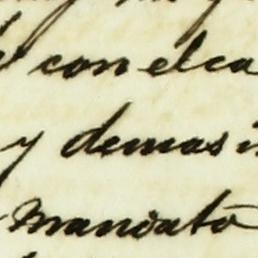 con el ca
y demas i
mandato